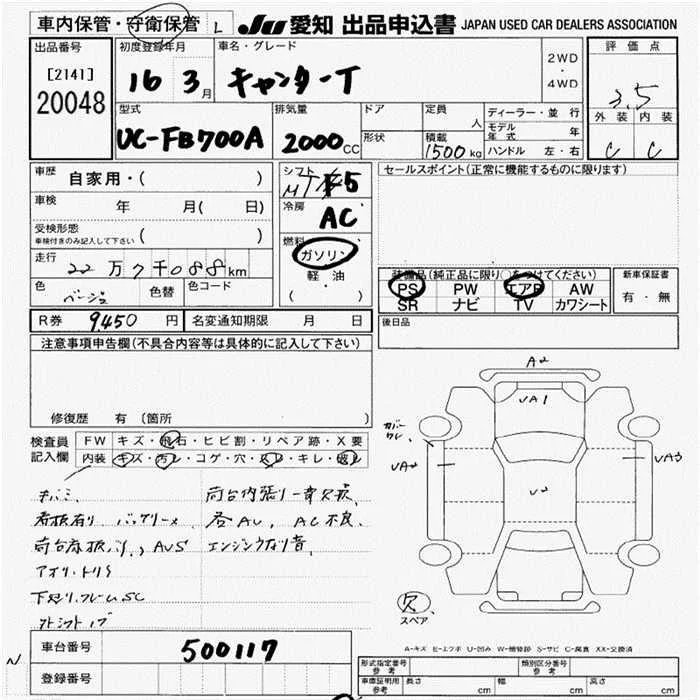 車内保管・守衛保管 L JU 愛知 出品申込書 JAPAN USED CAR DEALERS ASSOCIATION
出品番号 初度登録年月 車名・グレード 評価点
[2141] 16 3月 キャンターT 2WD・4WD 3.5
20048
型式 排気量 ドア 定員 ディーラー・並行 外装 内装
UC-FB700A 2000CC 形状 人 モデル年式 年 C C
積載 1500kg ハンドル 左・右
車歴 自家用・( ) シフト MT 5 セールスポイント(正常に機能するものに限ります)
車検 年 月( 日) 冷房 AC
受検形態 ( )
車検付きのみ記入して下さい
燃料 ガソリン
走行 22万7千088km 軽油 装備品(純正品に限り○をつけてください) 新車保証書
色 ベージュ 色替 色コード ( ) PS PW エアB AW 有・無
SR ナビ TV カワシート
R券 9,450円 名変通知期限 月 日 後日品
注意事項申告欄(不具合内容等は具体的に記入して下さい)
修復歴 有(箇所 )
検査員 FW キズ・飛石・ヒビ割・リペア跡・X要
記入欄 内装 キズ・汚レ・コゲ・穴・スレ・キレ・破レ
A2
UA1
カバーワレ
UA2 UA3
U2
荷台内張り一部欠損
看板有り バッテリー× 各AU, AC不良
AUS エンジンウナリ音
アオリ・トリS
下廻り.フレームSC
欠
スペア
A-キズ E-エクボ U-凹み W-補修跡 S-サビ C-腐食 XX-交換済
車台番号 500117 型式指定番号 参考 類別区分番号 参考
N 登録番号 車庫証明用 参考 長さ cm 幅 cm 高さ cm